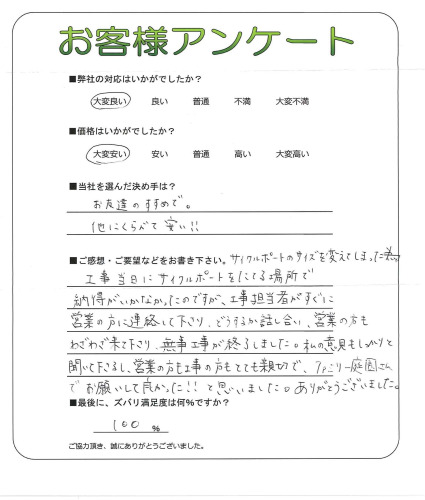 お客様アンケート
■弊社の対応はいかがでしたか?
大変良い 良い 普通 不満 大変不満
■価格はいかがでしたか?
大変安い 安い 普通 高い 大変高い
■当社を選んだ決め手は?
お友達のすすめで。
他にくらべて安い!!
■ご感想・ご要望などをお書き下さい。サイクルポートのサイズを変えてしまった
工事当日にサイクルポートをたてる場所で
納得がいかなかったのですが、工事担当者がすぐに
営業の方に連絡して下さり、どうするか話し合い、営業の方も
わざわざ来て下さり、無事工事が終了しました。私の意見もしっかりと
聞いて下さるし、営業の方も工事の方もとても親切で、ファミリー庭園さん
でお願いして良かった!!と思いました。ありがとうございました。
■最後に、ズバリ満足度は何%ですか?
100 %
ご協力頂き、誠にありがとうございました。